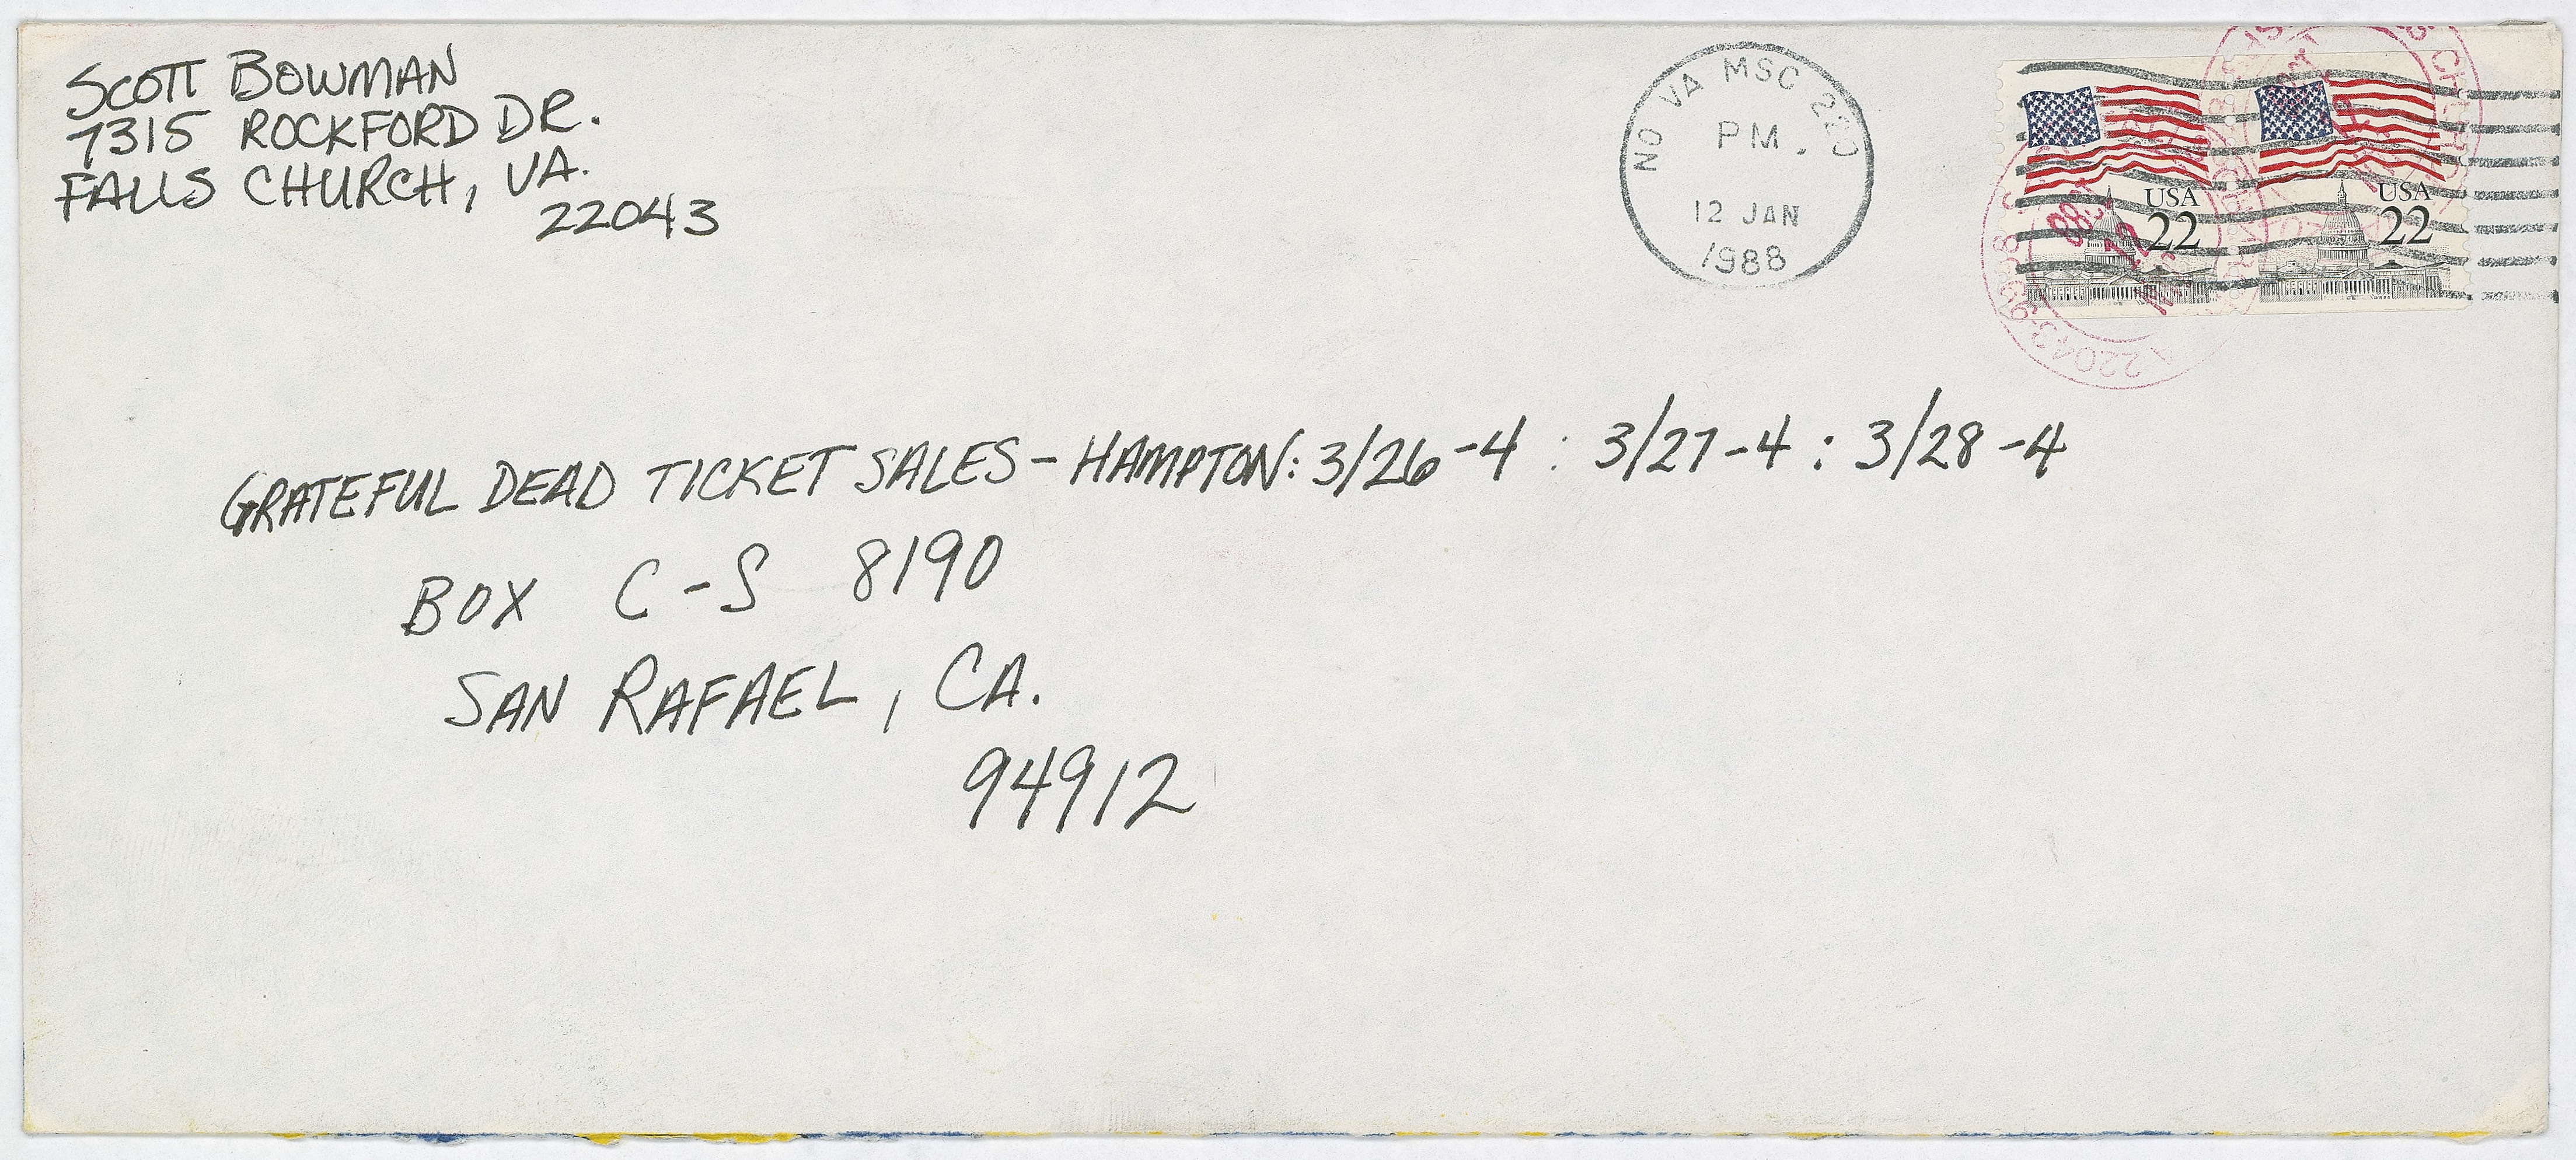 SCOTT BOWMAN
7315 ROCKFORD DR.
FALLS CHURCH, VA.
22043
NO VA MSC
PM
12 JAN
1988
USA
22
USA
22
22043-9998
GRATEFUL DEAD TICKET SALES - HAMPTON: 3/26-4 : 3/27-4 : 3/28-4
BOX C-S 8190
SAN RAFAEL, CA.
94912